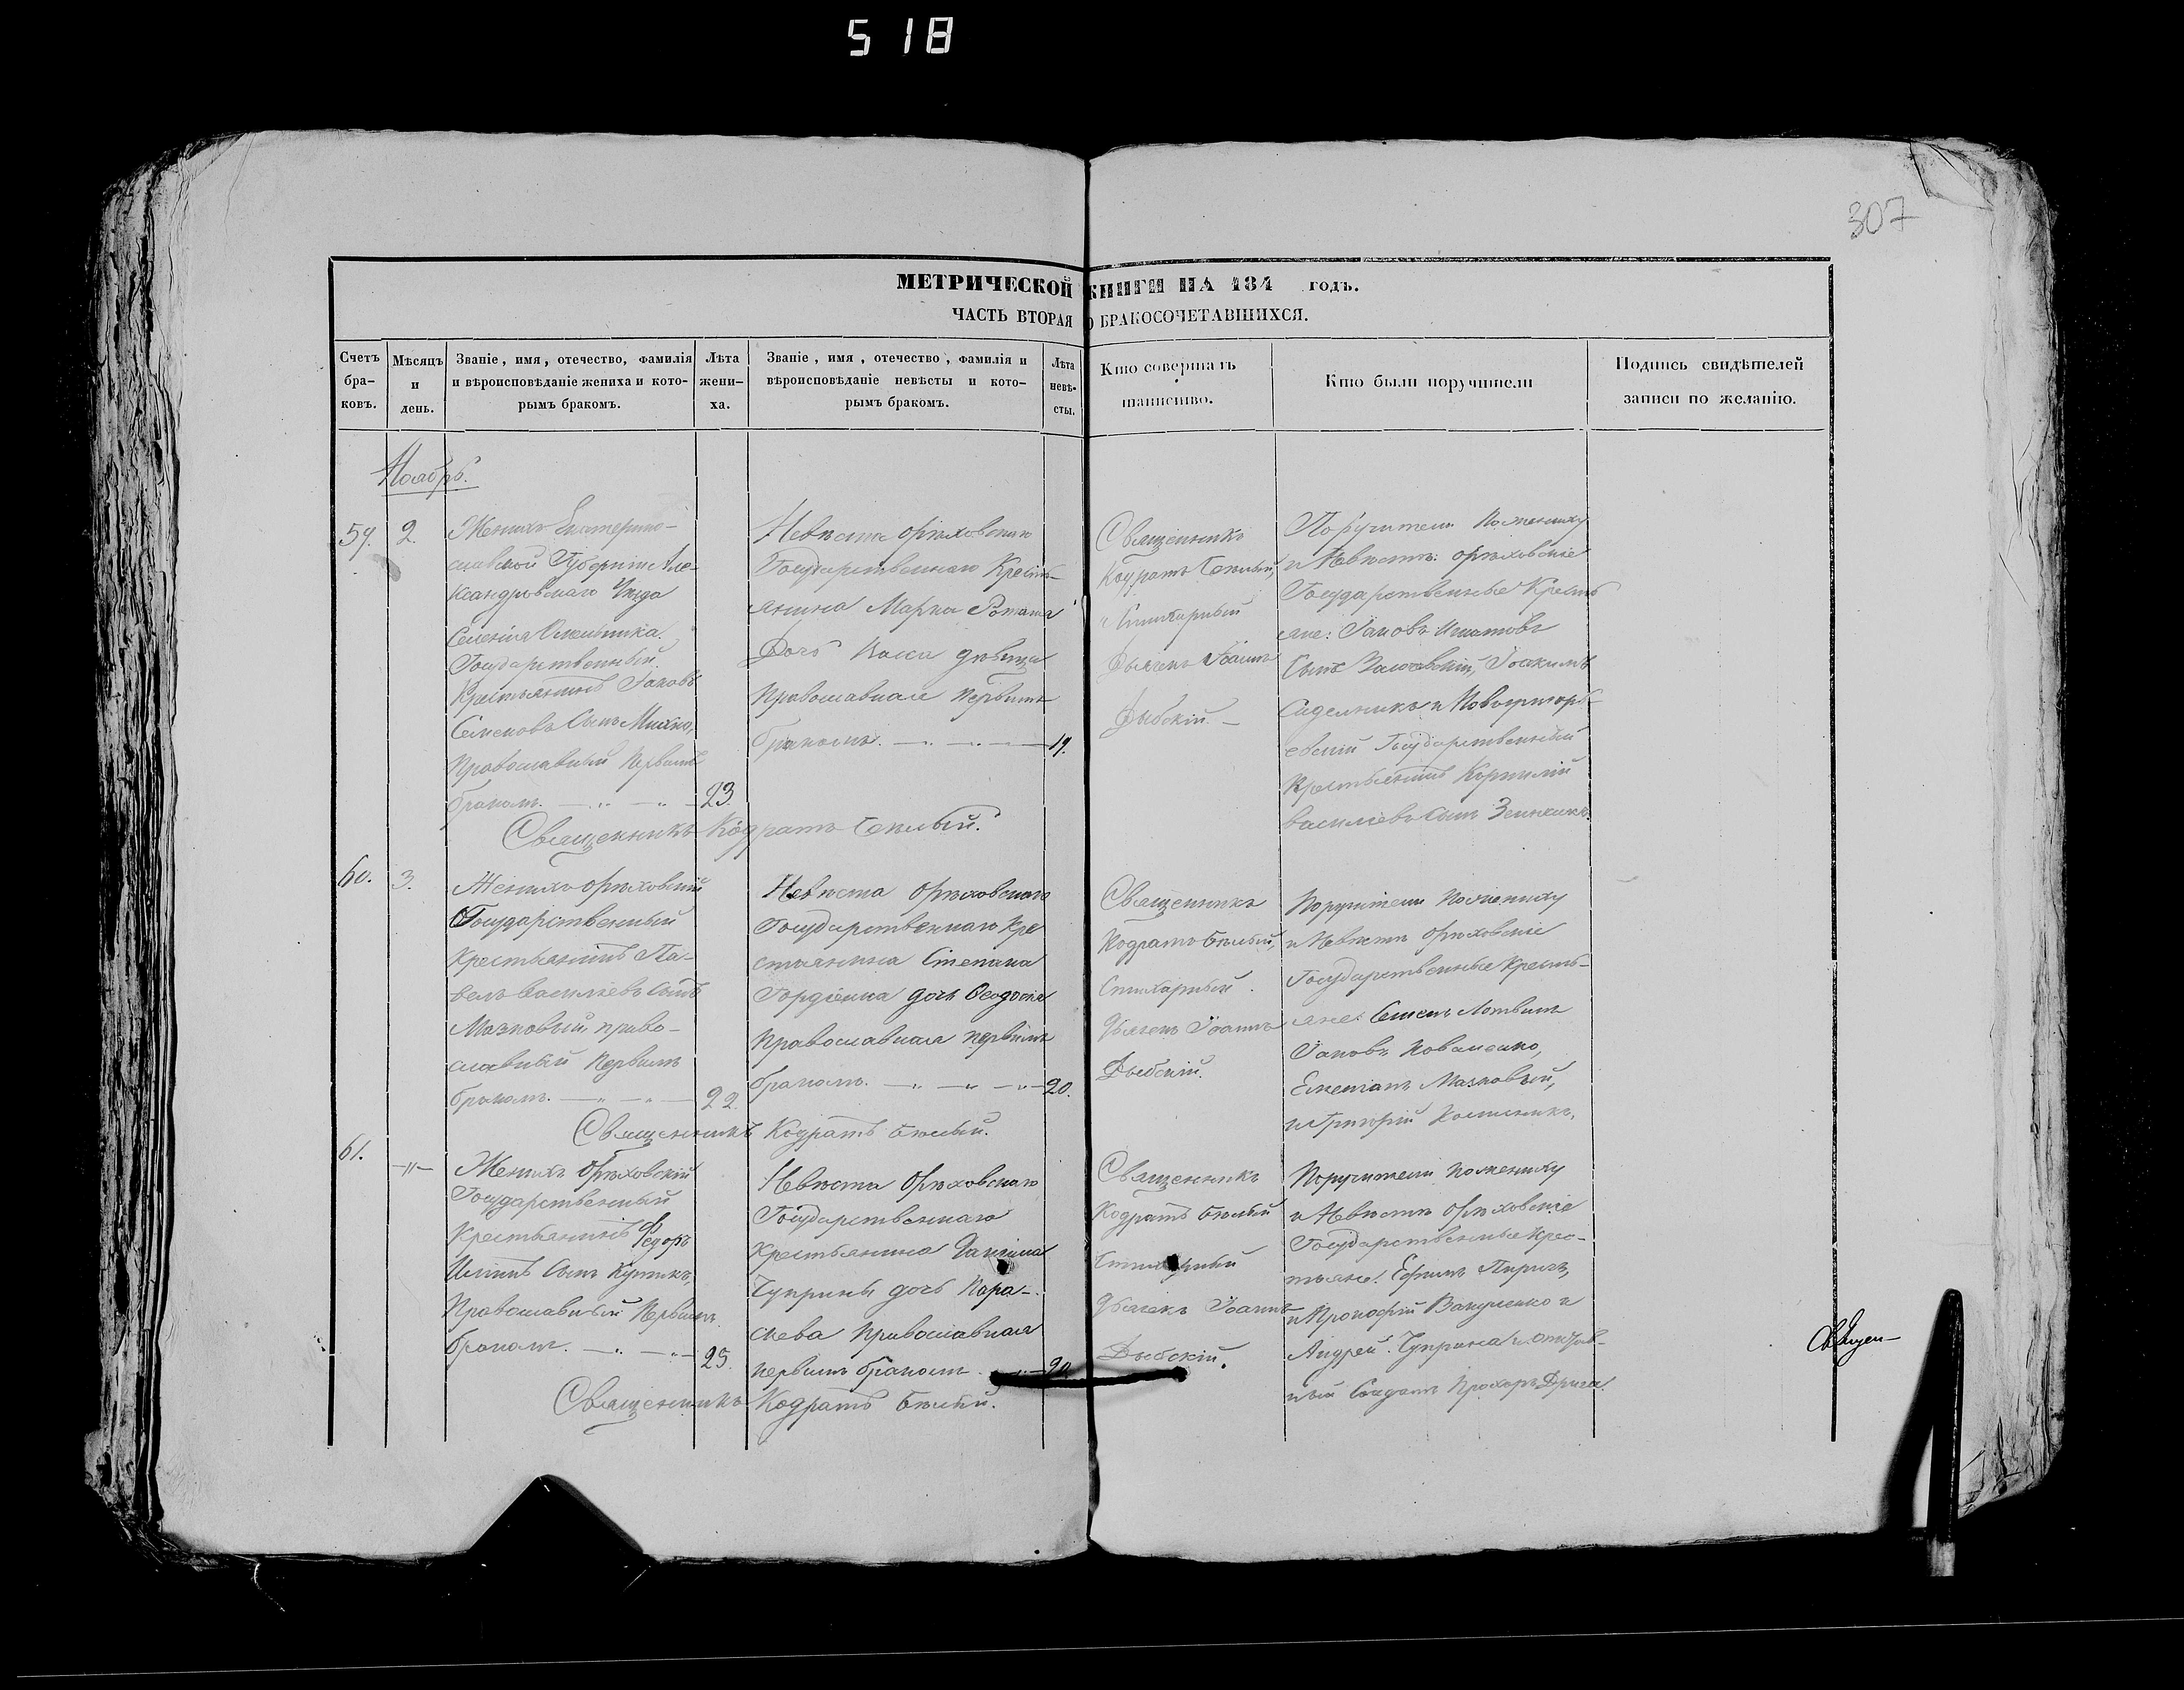 518
307
МЕТРИЧЕСКОЙ КНИГИ НА 184 годъ.
ЧАСТЬ ВТОРАЯ О БРАКОСОЧЕТАВШИХСЯ.
Счетъ бра-
ковъ.
Мѣсяцъ
и
день.
Званіе, имя, отечество, фамилія
и вѣроисповѣданіе жениха и кото-
рымъ бракомъ.
Лѣта
жени-
ха.
Званіе, имя, отечество, фамилія и
вѣроисповѣданіе невѣсты и кото-
рымъ бракомъ.
Лѣта
невѣ-
сты.
Кто совершалъ
таинство.
Кто были поручители
Подпись свидѣтелей
записи по желанію.
Ноябрь.
59.
2.
Женихъ Екатерино-
славской Губерніи Але-
ксандровскаго Уѣзда
Селенія Омельника.
Государственный
Крестьянинъ Іаковъ
Семеновъ Сынъ Михно,
Православный Первымъ
бракомъ.
23.
Невѣста Орѣховскаго
Государственнаго Кресть-
янина Марка
Дочь Васса дѣвица
Православная первымъ
бракомъ.
19.
Священникъ
Кодратъ Бѣлый,
и Стихарный
Дьячекъ Іоаннъ
Дыбскій.
Поручители По жениху
и Невѣстѣ: Орѣховскіе
Государственные Кресть
яне: Іаковъ Игнатовъ
Сынъ Іоакимъ
Сидельникъ и Новогригорь-
евскій Государственный
Крестьянинъ Корнилій
Васильевъ Сынъ
Священникъ Кодратъ Бѣлый.
60.
3.
Женихъ Орѣховскій
Государственный
Крестьянинъ Па-
велъ Васильевъ Сынъ
Мазковый право-
славный Первымъ
бракомъ.
22.
Невѣста Орѣховскаго
Государственнаго Кре
стьянина Степана
Гордіенка дочь Ѳеодосія
Православная первымъ
бракомъ.
20.
Священникъ
Кодратъ Бѣлый,
Стихарный
Дьячекъ Іоаннъ
Дыбскій.
Поручители По жениху
и Невѣстѣ Орѣховскіе
Государственные Кресть-
яне: Семенъ Литвинъ
Іаковъ Коваленко,
Емеліанъ Мазковый,
и Григорій
Священникъ Кодратъ Бѣлый.
61.
-"-
Женихъ Орѣховскій
Государственный
Крестьянинъ Ѳедоръ
Ильинъ Сынъ
Православный Первымъ
бракомъ.
25.
Невѣста Орѣховскаго
Государственнаго
Крестьянина Даніила
Чуприны дочь Пара-
скева Православная
первымъ бракомъ
20.
Священникъ
Кодратъ Бѣлый
Стихарный
Дьячекъ Іоаннъ
Дыбскій.
Поручители По жениху
и Невѣстѣ Орѣховскіе
Государственные Крес-
тьяне: Ефимъ Пирогъ,
и Прокофій Вакуленко и
Андрей Чуприна и отстав-
ный Солдатъ Прохоръ Дрига.
Священникъ Кодратъ Бѣлый.
Священ-